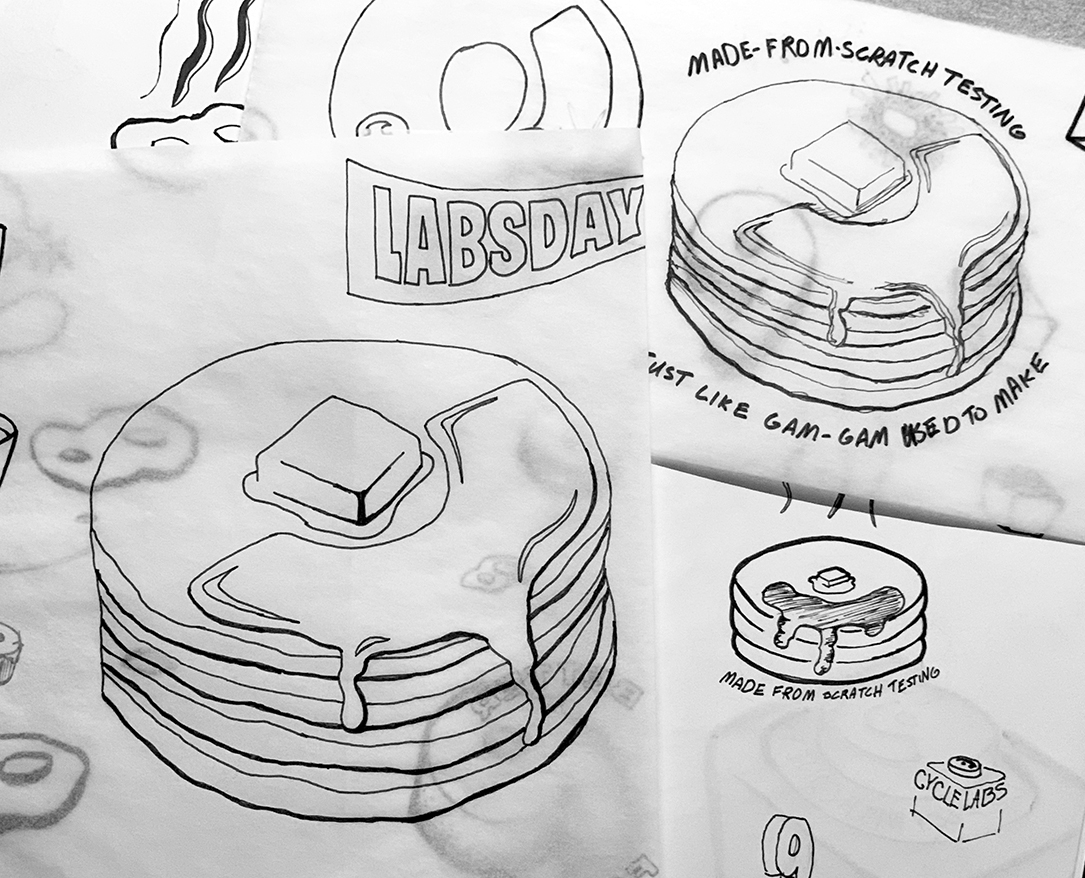 MADE-FROM-SCRATCH TESTING
LABSDAY
JUST LIKE GAM-GAM USED TO MAKE
MADE FROM SCRATCH TESTING
CYCLELABS
9